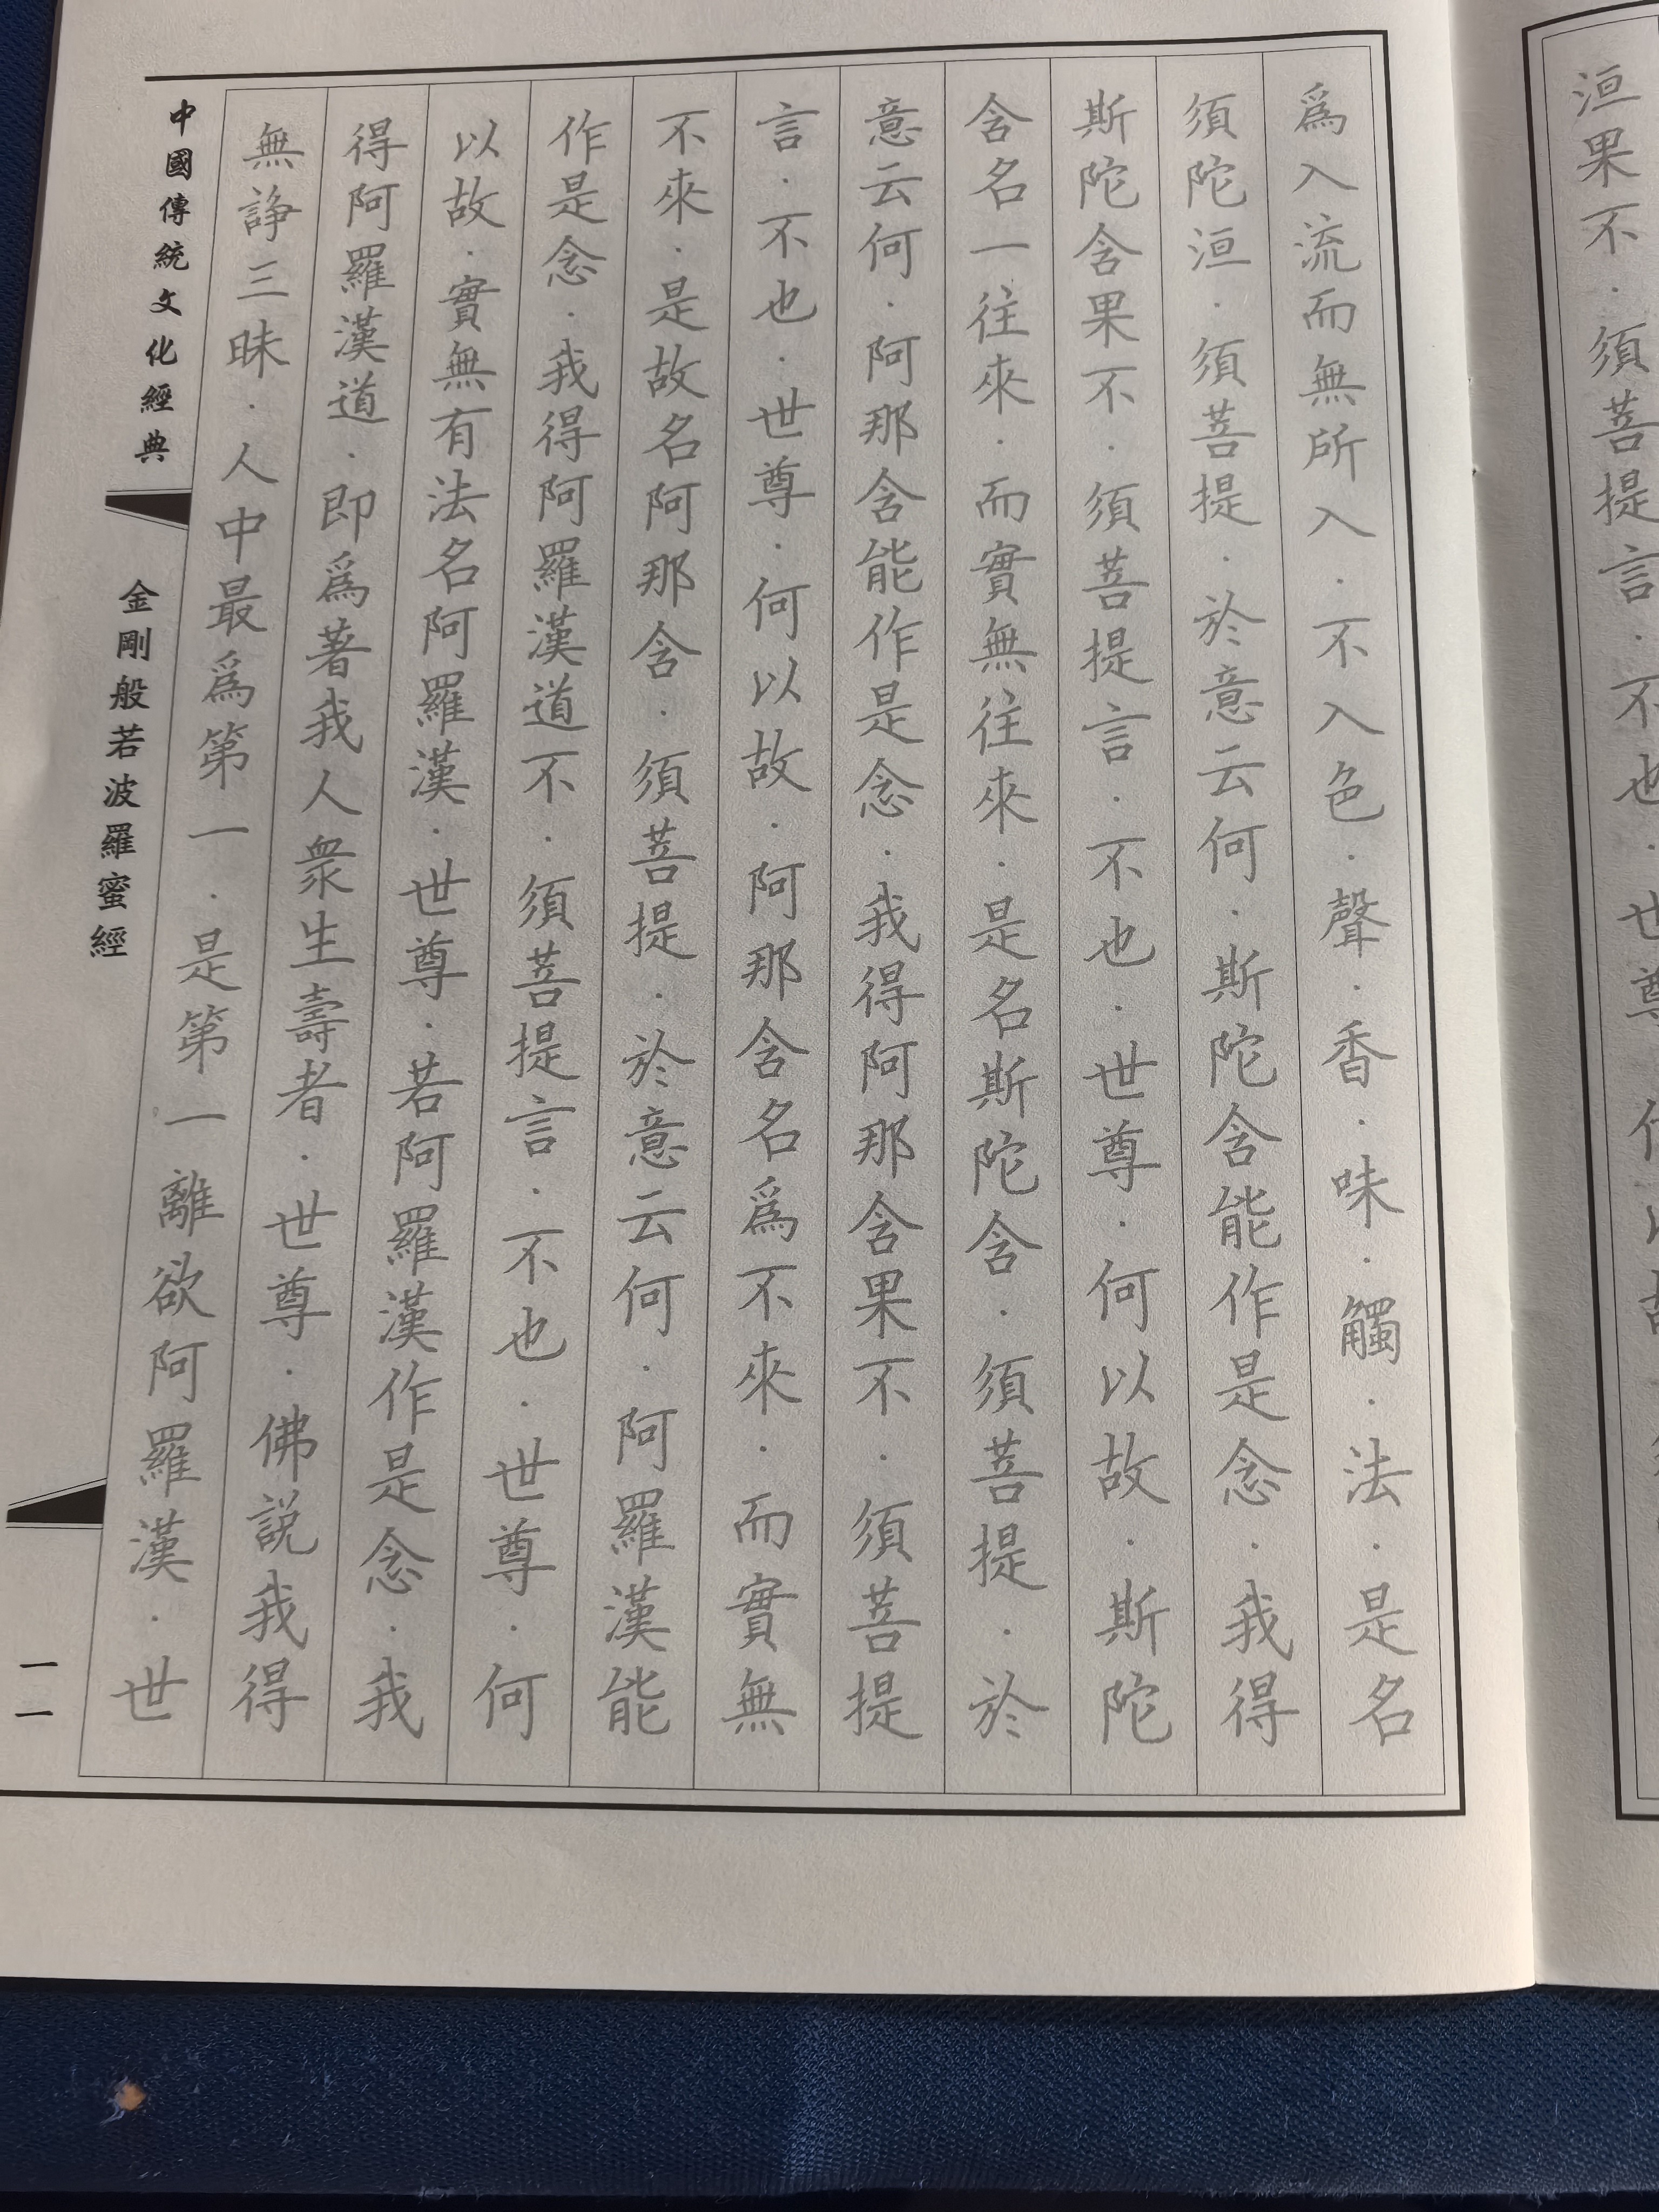 洹果不·須菩提言·不也·世尊
爲入流而無所入·不入色·聲·香·味·觸·法·是名
須陀洹·須菩提·於意云何·斯陀含能作是念·我得
斯陀含果不·須菩提言·不也·世尊·何以故·斯陀
含名一往來·而實無往來·是名斯陀含·須菩提·於
意云何·阿那含能作是念·我得阿那含果不·須菩提
言·不也·世尊·何以故·阿那含名爲不來·而實無
不來·是故名阿那含·須菩提·於意云何·阿羅漢能
作是念·我得阿羅漢道不·須菩提言·不也·世尊·何
以故·實無有法名阿羅漢·世尊·若阿羅漢作是念·我
得阿羅漢道·即爲著我人衆生壽者·世尊·佛説我得
無諍三昧·人中最爲第一·是第一離欲阿羅漢·世
中國傳統文化經典
金剛般若波羅蜜經
一一